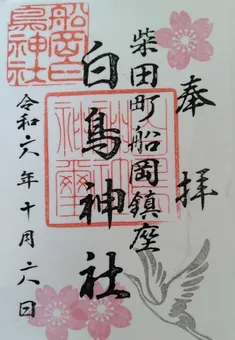 奉拝
柴田町船岡鎮座
白鳥神社
令和六年十月六日
船岡白
鳥神社